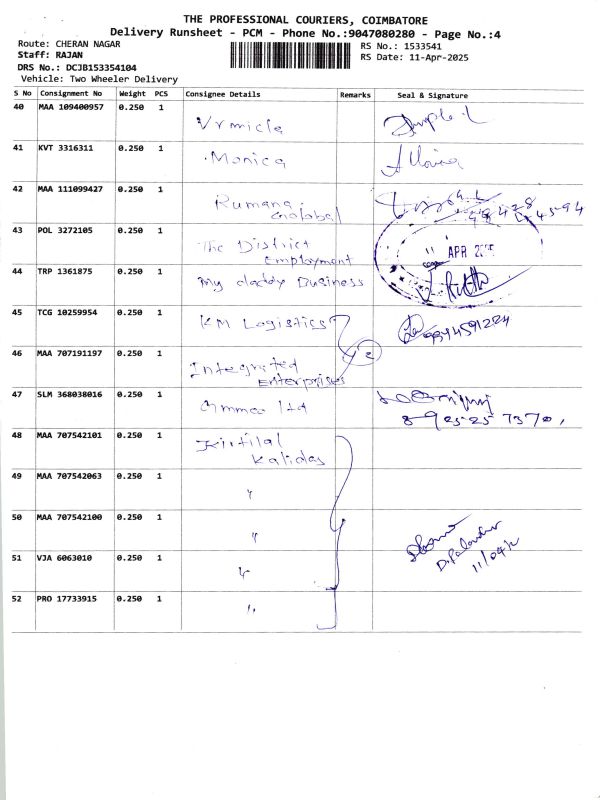 THE PROFESSIONAL COURIERS, COIMBATORE
Delivery Runsheet - PCM - Phone No.:9047080280 - Page No.:4
Route: CHERAN NAGAR
Staff: RAJAN
DRS No.: DCJB153354104
Vehicle: Two Wheeler Delivery
RS No.: 1533541
RS Date: 11-Apr-2025
S No Consignment No Weight PCS Consignee Details Remarks Seal & Signature
40 MAA 109400957 0.250 1 Vrmicle
41 KVT 3316311 0.250 1 Monica
42 MAA 111099427 0.250 1 Rumana
Golobal
43 POL 3272105 0.250 1 The District
Employment
11 APR
44 TRP 1361875 0.250 1 my daddy Business
45 TCG 10259954 0.250 1 KM Logistics
2
46 MAA 707191197 0.250 1 Integrated
Enterprises
47 SLM 368038016 0.250 1 Ltd
89 25 25 7370,
48 MAA 707542101 0.250 1 Kirtilal
Kalidas
49 MAA 707542063 0.250 1 "
50 MAA 707542100 0.250 1 "
51 VJA 6063010 0.250 1 "
52 PRO 17733915 0.250 1 "